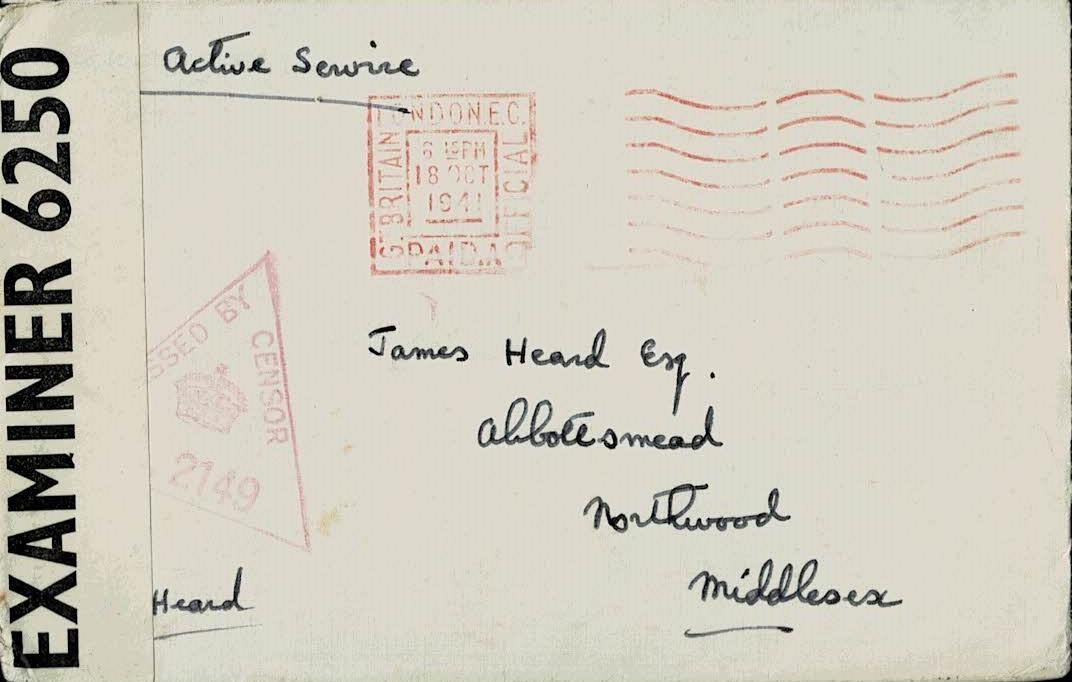 EXAMINER 6250
Active Service
LONDON.E.C.
GT BRITAIN
6 15PM
18 OCT
1941
OFFICIAL
PAID.A
SSED BY CENSOR
2149
James Heard Esq.
Abbottsmead
Northwood
Middlesex
Heard